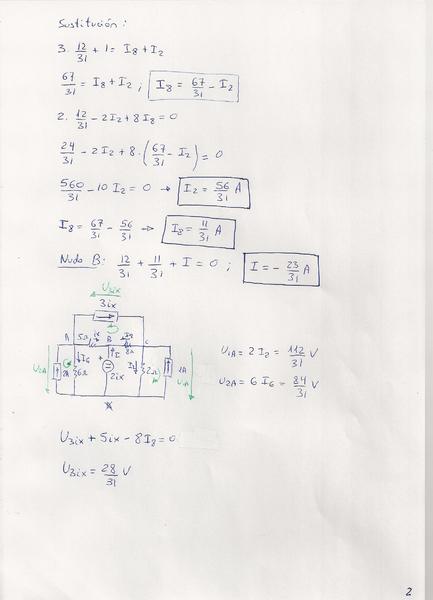 Sustitución:
3. 12/31 + 1 = I8 + I2
67/31 = I8 + I2 ; I8 = 67/31 - I2
2. 12/31 - 2I2 + 8I8 = 0
24/31 - 2I2 + 8·(67/31 - I2) = 0
560/31 - 10 I2 = 0 → I2 = 56/31 A
I8 = 67/31 - 56/31 → I8 = 11/31 A
Nudo B: 12/31 + 11/31 + I = 0 ; I = - 23/31 A
U3ix
3ix
A 5Ω ix B I8 C
8Ω
U2A 2A I6 6Ω I 2ix I2 2Ω 1A U1A
U1A = 2 I2 = 112/31 V
U2A = 6 I6 = 84/31 V
U3ix + 5ix - 8I8 = 0
U3ix = 28/31 V
2